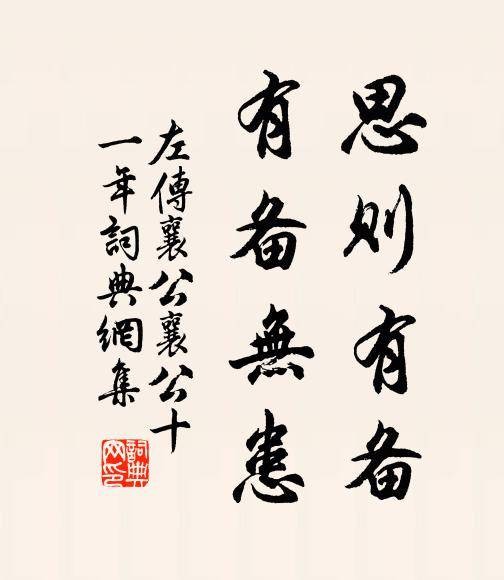 思则有备
有备無患
左傳襄公襄公十
一年詞典網集
詞典
网印